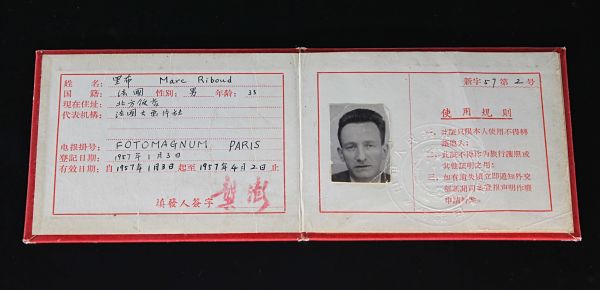 姓 名： 里布 Marc Riboud
国 籍： 法國 性别： 男 年龄： 33
現在住址： 北方饭店
代表机構： 法國大照片社
电报掛号： FOTOMAGNUM, PARIS
登記日期： 1957年1月3日
有效日期：自1957年1月3日起至1957年4月2日止
填發人签字 龔澎
新字57第2号
使用规则
一、此証只限本人使用不得轉
二、此証不得作为旅行護照或
其他証明之用；
三、如有遺失須立即通知外交
部新聞司